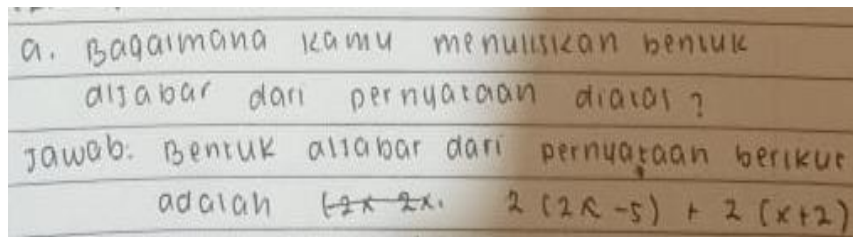 a. Bagaimana kamu menuliskan bentuk
aljabar dari pernyataan diatas ?
Jawab: Bentuk aljabar dari pernyataan berikut
adalah (2x 2x. 2 (2x -5) + 2 (x+2)